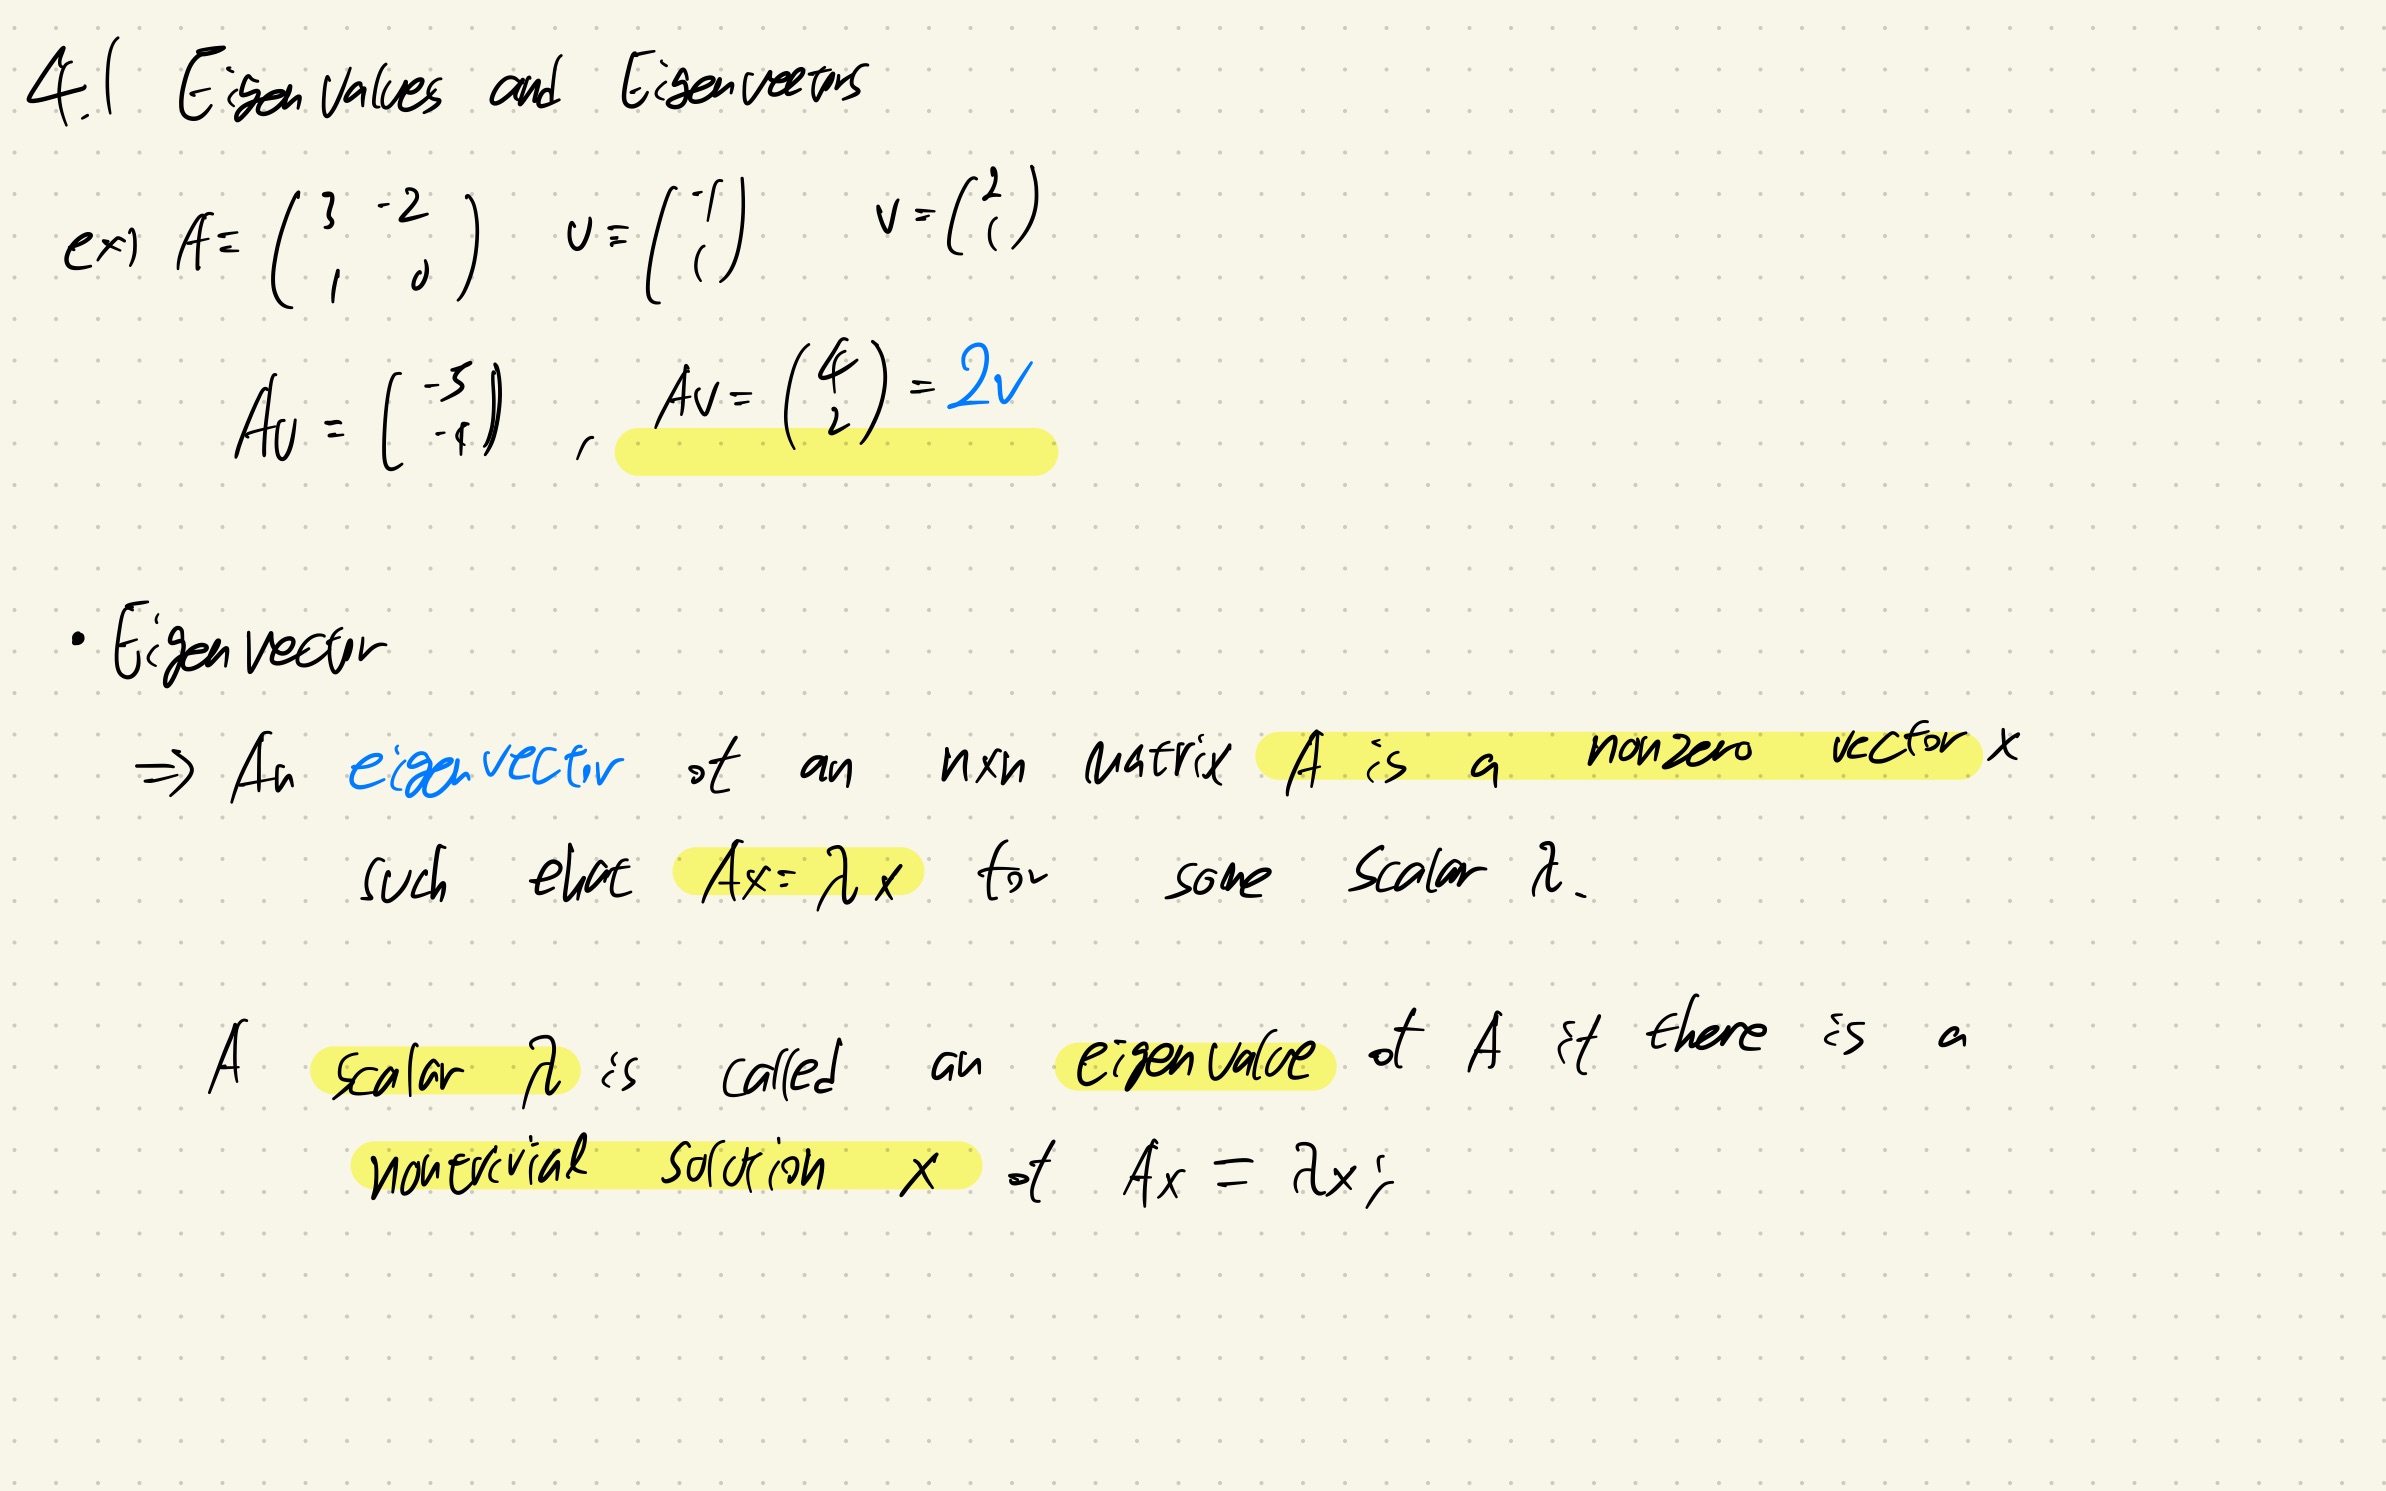 4.1 Eigenvalues and Eigenvectors
ex) A = ( 3 -2 ; 1 0 ) u = ( -1 ; 1 ) v = ( 2 ; 1 )
Au = ( -5 ; -1 ) , Av = ( 4 ; 2 ) = 2v
• Eigenvector
⇒ An eigenvector of an n×n matrix A is a nonzero vector x
such that Ax = λx for some scalar λ.
A scalar λ is called an eigenvalue of A if there is a
nontrivial solution x of Ax = λx;